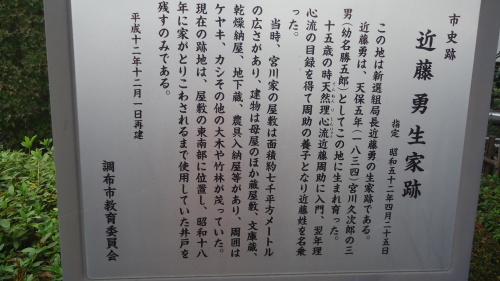 市史跡
近藤勇生家跡
指定 昭和五十二年四月二十五日
この地は新選組局長近藤勇の生家跡である。
近藤勇は、天保五年(一八三四)宮川久次郎の三
男(幼名勝五郎)としてこの地に生まれ育った。
十五歳の時天然理心流近藤周助に入門、翌年理
心流の目録を得て周助の養子となり近藤姓を名乗
った。
当時、宮川家の屋敷は面積約七千平方メートル
の広さがあり、建物は母屋のほか蔵屋敷、文庫蔵、
乾燥納屋、地下蔵、農具入納屋等があり、周囲は
ケヤキ、カシその他の大木や竹林が茂っていた。
現在の跡地は、屋敷の東南部に位置し、昭和十八
年に家がとりこわされるまで使用していた井戸を
残すのみである。
平成十二年十二月一日再建
調布市教育委員会